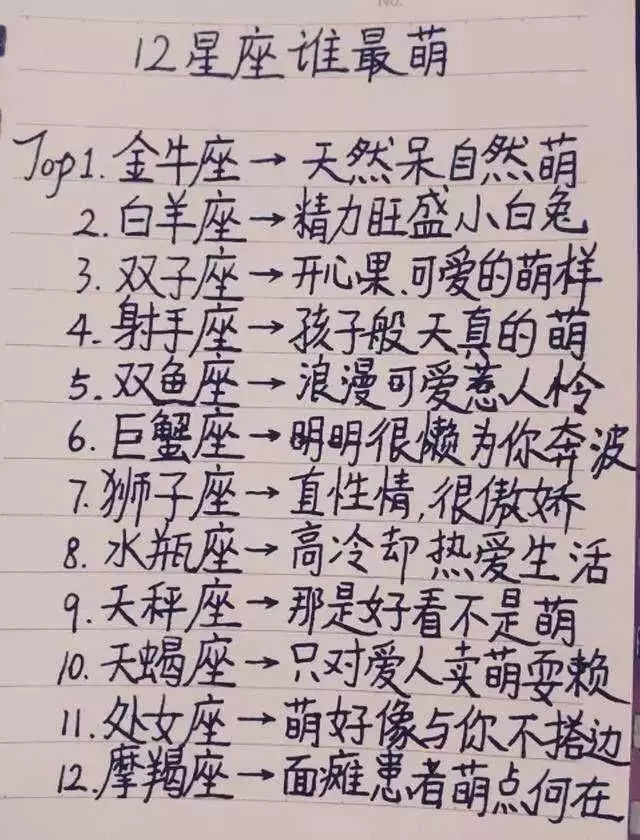 12星座谁最萌
Top1.金牛座→天然呆自然萌
2.白羊座→精力旺盛小白兔
3.双子座→开心果.可爱的萌样
4.射手座→孩子般天真的萌
5.双鱼座→浪漫可爱惹人怜
6.巨蟹座→明明很懒为你奔波
7.狮子座→直性情,很傲娇
8.水瓶座→高冷却热爱生活
9.天秤座→那是好看不是萌
10.天蝎座→只对爱人卖萌耍赖
11.处女座→萌好像与你不搭边
12.摩羯座→面瘫患者萌点何在